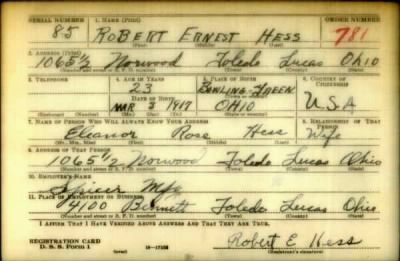 SERIAL NUMBER 1. NAME (Print) ORDER NUMBER
85 ROBERT ERNEST HESS 781
(First) (Middle) (Last)
2. ADDRESS (Print)
1065½ Norwood Toledo Lucas Ohio
(Number and street or R. F. D. number) (Town) (County) (State)
3. TELEPHONE 4. AGE IN YEARS 5. PLACE OF BIRTH 6. COUNTRY OF CITIZENSHIP
23 BOWLING GREEN
DATE OF BIRTH
MAR 3 1917 OHIO USA
(Exchange) (Number) (Mo.) (Day) (Yr.)
7. NAME OF PERSON WHO WILL ALWAYS KNOW YOUR ADDRESS 8. RELATIONSHIP OF THAT PERSON
Eleanor Rose Hess Wife
(Mr., Mrs., Miss) (First) (Middle) (Last)
9. ADDRESS OF THAT PERSON
1065½ Norwood Toledo Lucas Ohio
(Number and street or R. F. D. number) (Town) (County) (State)
10. EMPLOYER'S NAME
Spicer Mfg
11. PLACE OF EMPLOYMENT OR BUSINESS
4100 Bennett Toledo Lucas Ohio
(Number and street or R. F. D. number) (Town) (County) (State)
I AFFIRM THAT I HAVE VERIFIED ABOVE ANSWERS AND THAT THEY ARE TRUE.
REGISTRATION CARD Robert E. Hess
D. S. S. Form 1 (over) (Registrant's signature)